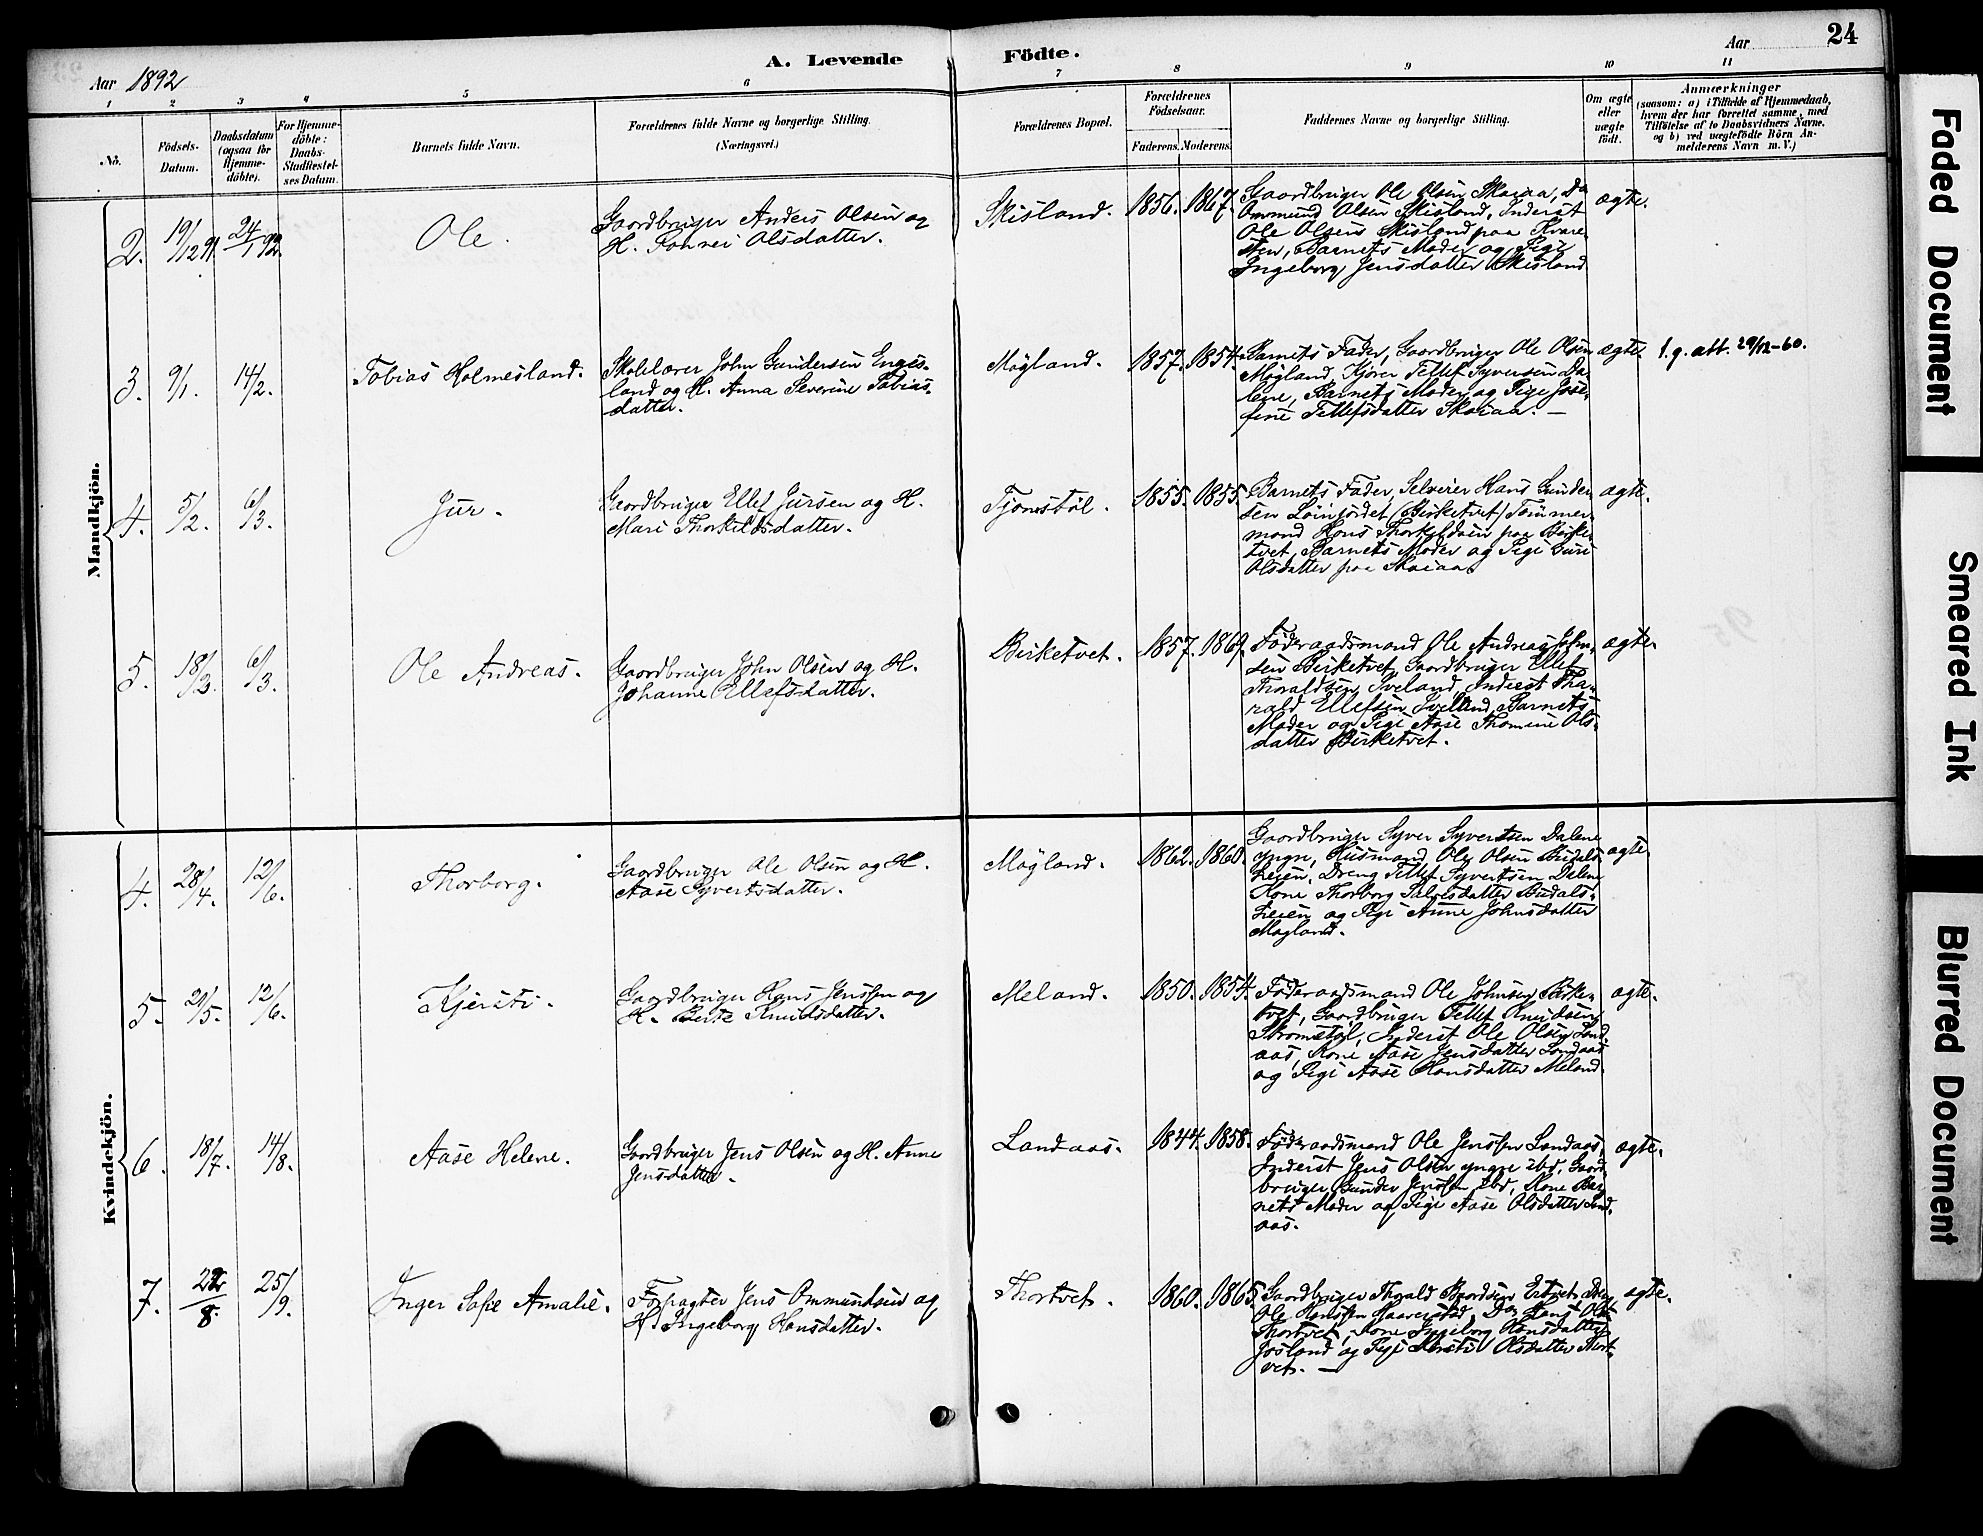 24
A. Levende Födte.
Aar 1892
Aar
1 2 3 4 5 6 7 8 9 10 11
No.
Födsels-
Datum.
Daabsdatum
(ogsaa for
Hjemme-
döbte).
For Hjemme-
döbte:
Daabs-
Stadfæstel-
ses Datum.
Barnets fulde Navn.
Forældrenes fulde Navne og borgerlige Stilling.
(Næringsvei.)
Forældrenes Bopæl.
Forældrenes
Födselsaar.
Faderens. Moderens.
Faddernes Navne og borgerlige Stilling.
Om ægte
eller
uægte
födt.
Anmærkninger
(saasom: a) i Tilfælde af Hjemmedaab,
hvem der har forrettet samme, med
Tilföielse af to Daabsvidners Navne,
og b) ved uægtefödte Börn An-
melderens Navn m. V.)
Mandkjön.
2. 19/12 91. 24/1 92.
Ole.
Gaardbruger Anders Olsen og
H. Olsdatter.
Skisland.
1856. 1867.
Gaardbruger Ole Olsen Skaiaa, Do
Ommund Olsen Skisland, Inderst
Ole Olsen Skisland paa Kvare-
sten, Barnets Moder og Pige
Ingeborg Jensdatter Skisland
ægte.
3. 9/1. 14/2.
Tobias Holmesland.
Skolelærer John Gundersen Engis-
land og H. Anna Severine Tobias-
datter.
Mögland.
1857. 1854.
Barnets Fader, Gaardbruger Ole Olsen
Mögland, Tellef Syversen Da-
lene, Barnets Moder og Pige Jose-
fine Tellefsdatter Skaiaa. —
ægte.
l. g. att. 29/12-60.
4. 5/2. 6/3.
Jur.
Gaardbruger Ellef Jursen og H.
Mari Thorkildsdatter.
Tjömstöl.
1855. 1855.
Barnets Fader, Selveier Hans Gunder-
sen (Birketvet) Tömmer-
mand Hans Thorkildsen paa Birke-
tvet, Barnets Moder og Pige Guri
Olsdatter paa Skaiaa.
ægte.
5. 18/2. 6/3.
Ole Andreas.
Gaardbruger John Olsen og H.
Johanne Ellefsdatter.
Birketvet.
1857. 1869.
Föderaadsmand Ole Andreas John-
sen Birketvet, Gaardbruger Ellef
Thoraldsen Iveland, Inderst Tho-
rald Ellefsen Iveland, Barnets
Moder og Pige Aase Thomine Ols-
datter Birketvet.
ægte.
Kvindekjön.
4. 28/4. 12/6.
Thorborg.
Gaardbruger Ole Olsen og H.
Aase Syvertsdatter.
Mögland.
1862. 1860.
Gaardbruger Syver Syvertsen Dalene
yngre, Husmand Ole Olsen Budals-
heien, Dreng Tellef Syvertsen Dalene
Kone Thorborg Salvesdatter Budals-
heien og Pige Anne Johnsdatter
Mögland.
ægte.
5. 21/5. 12/6.
Kjersti.
Gaardbruger Hans Jenssen og
H. Berte Knudsdatter.
Meland.
1850. 1854.
Föderaadsmand Ole Johnsen Birke-
tvet, Gaardbruger Tellef Knudsen
Tjömstöl, Inderst Ole Olsen Land-
aas, Kone Aase Jensdatter Landaas
og Pige Aase Hansdatter Meland.
ægte.
6. 18/7. 14/8.
Aase Helene.
Gaardbruger Jens Olsen og H. Anne
Jensdatter.
Landaas.
1844. 1858.
Föderaadsmand Ole Jenssen Landaas,
Inderst Jens Olsen yngre ibd, Gaard-
bruger Gunder Jenssen ibd, Kone Bar-
nets Moder og Pige Aase Olsdatter Land-
aas.
ægte.
7. 22/8. 25/9.
Inger Sofie Amalie.
Forpagter Jens Ommundsen og
H. Ingeborg Hansdatter.
Thortvet.
1860. 1865.
Gaardbruger Thorald Baardsen Ertzvet, Dreng
Ole Hanssen Haaverstad, Do Hans Olsen
Thortvet, Kone Ingeborg Hansdatter
Josland og Pige Kirsti Olsdatter Thort-
vet. —
ægte.
Faded Document
Smeared Ink
Blurred Document